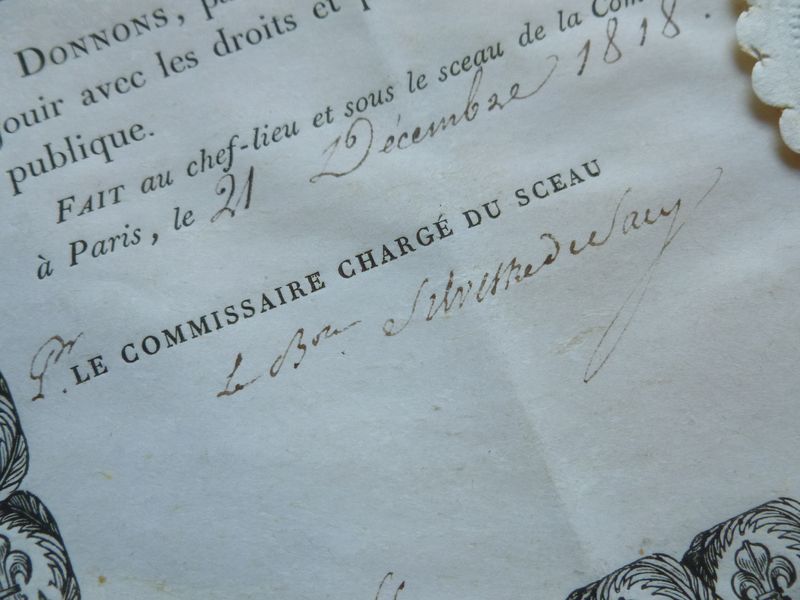 DONNONS, pa
jouir avec les droits et p
publique.
FAIT au chef-lieu et sous le sceau de la Com
à Paris, le 21 Décembre 1818.
Pr. LE COMMISSAIRE CHARGÉ DU SCEAU
Le Bon Silvestre de Sacy